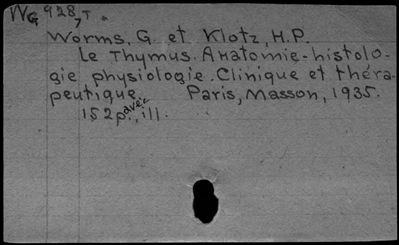 WG 928, T
Worms, G. et Klotz, H.P.
Le Thymus. Anatomie-histolo-
gie physiologie. Clinique et théra-
peutique. Paris, Masson, 1935.
152p. avec ill.